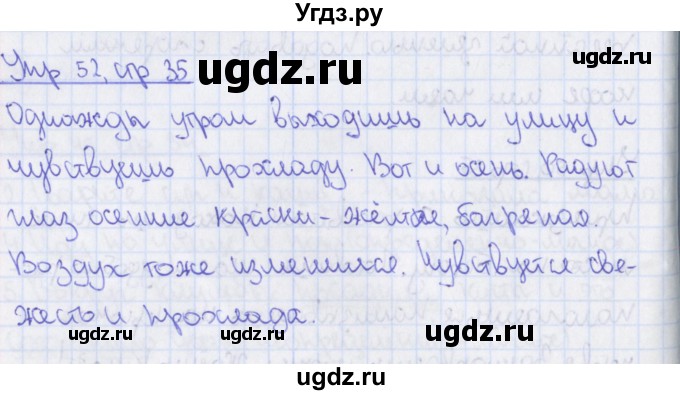 Угдз.ру
Упр 52, стр 35
ugdz.ru
ugdz.ru
Однажды утром выходишь на улицу и
чувствуешь прохладу. Вот и осень. Радуют
глаз осенние краски - жёлтые, багряная.
Воздух тоже изменился. Чувствуется све-
жесть и прохлада.
ugdz.ru
ugdz.ru
ugdz.ru
ugdz.ru